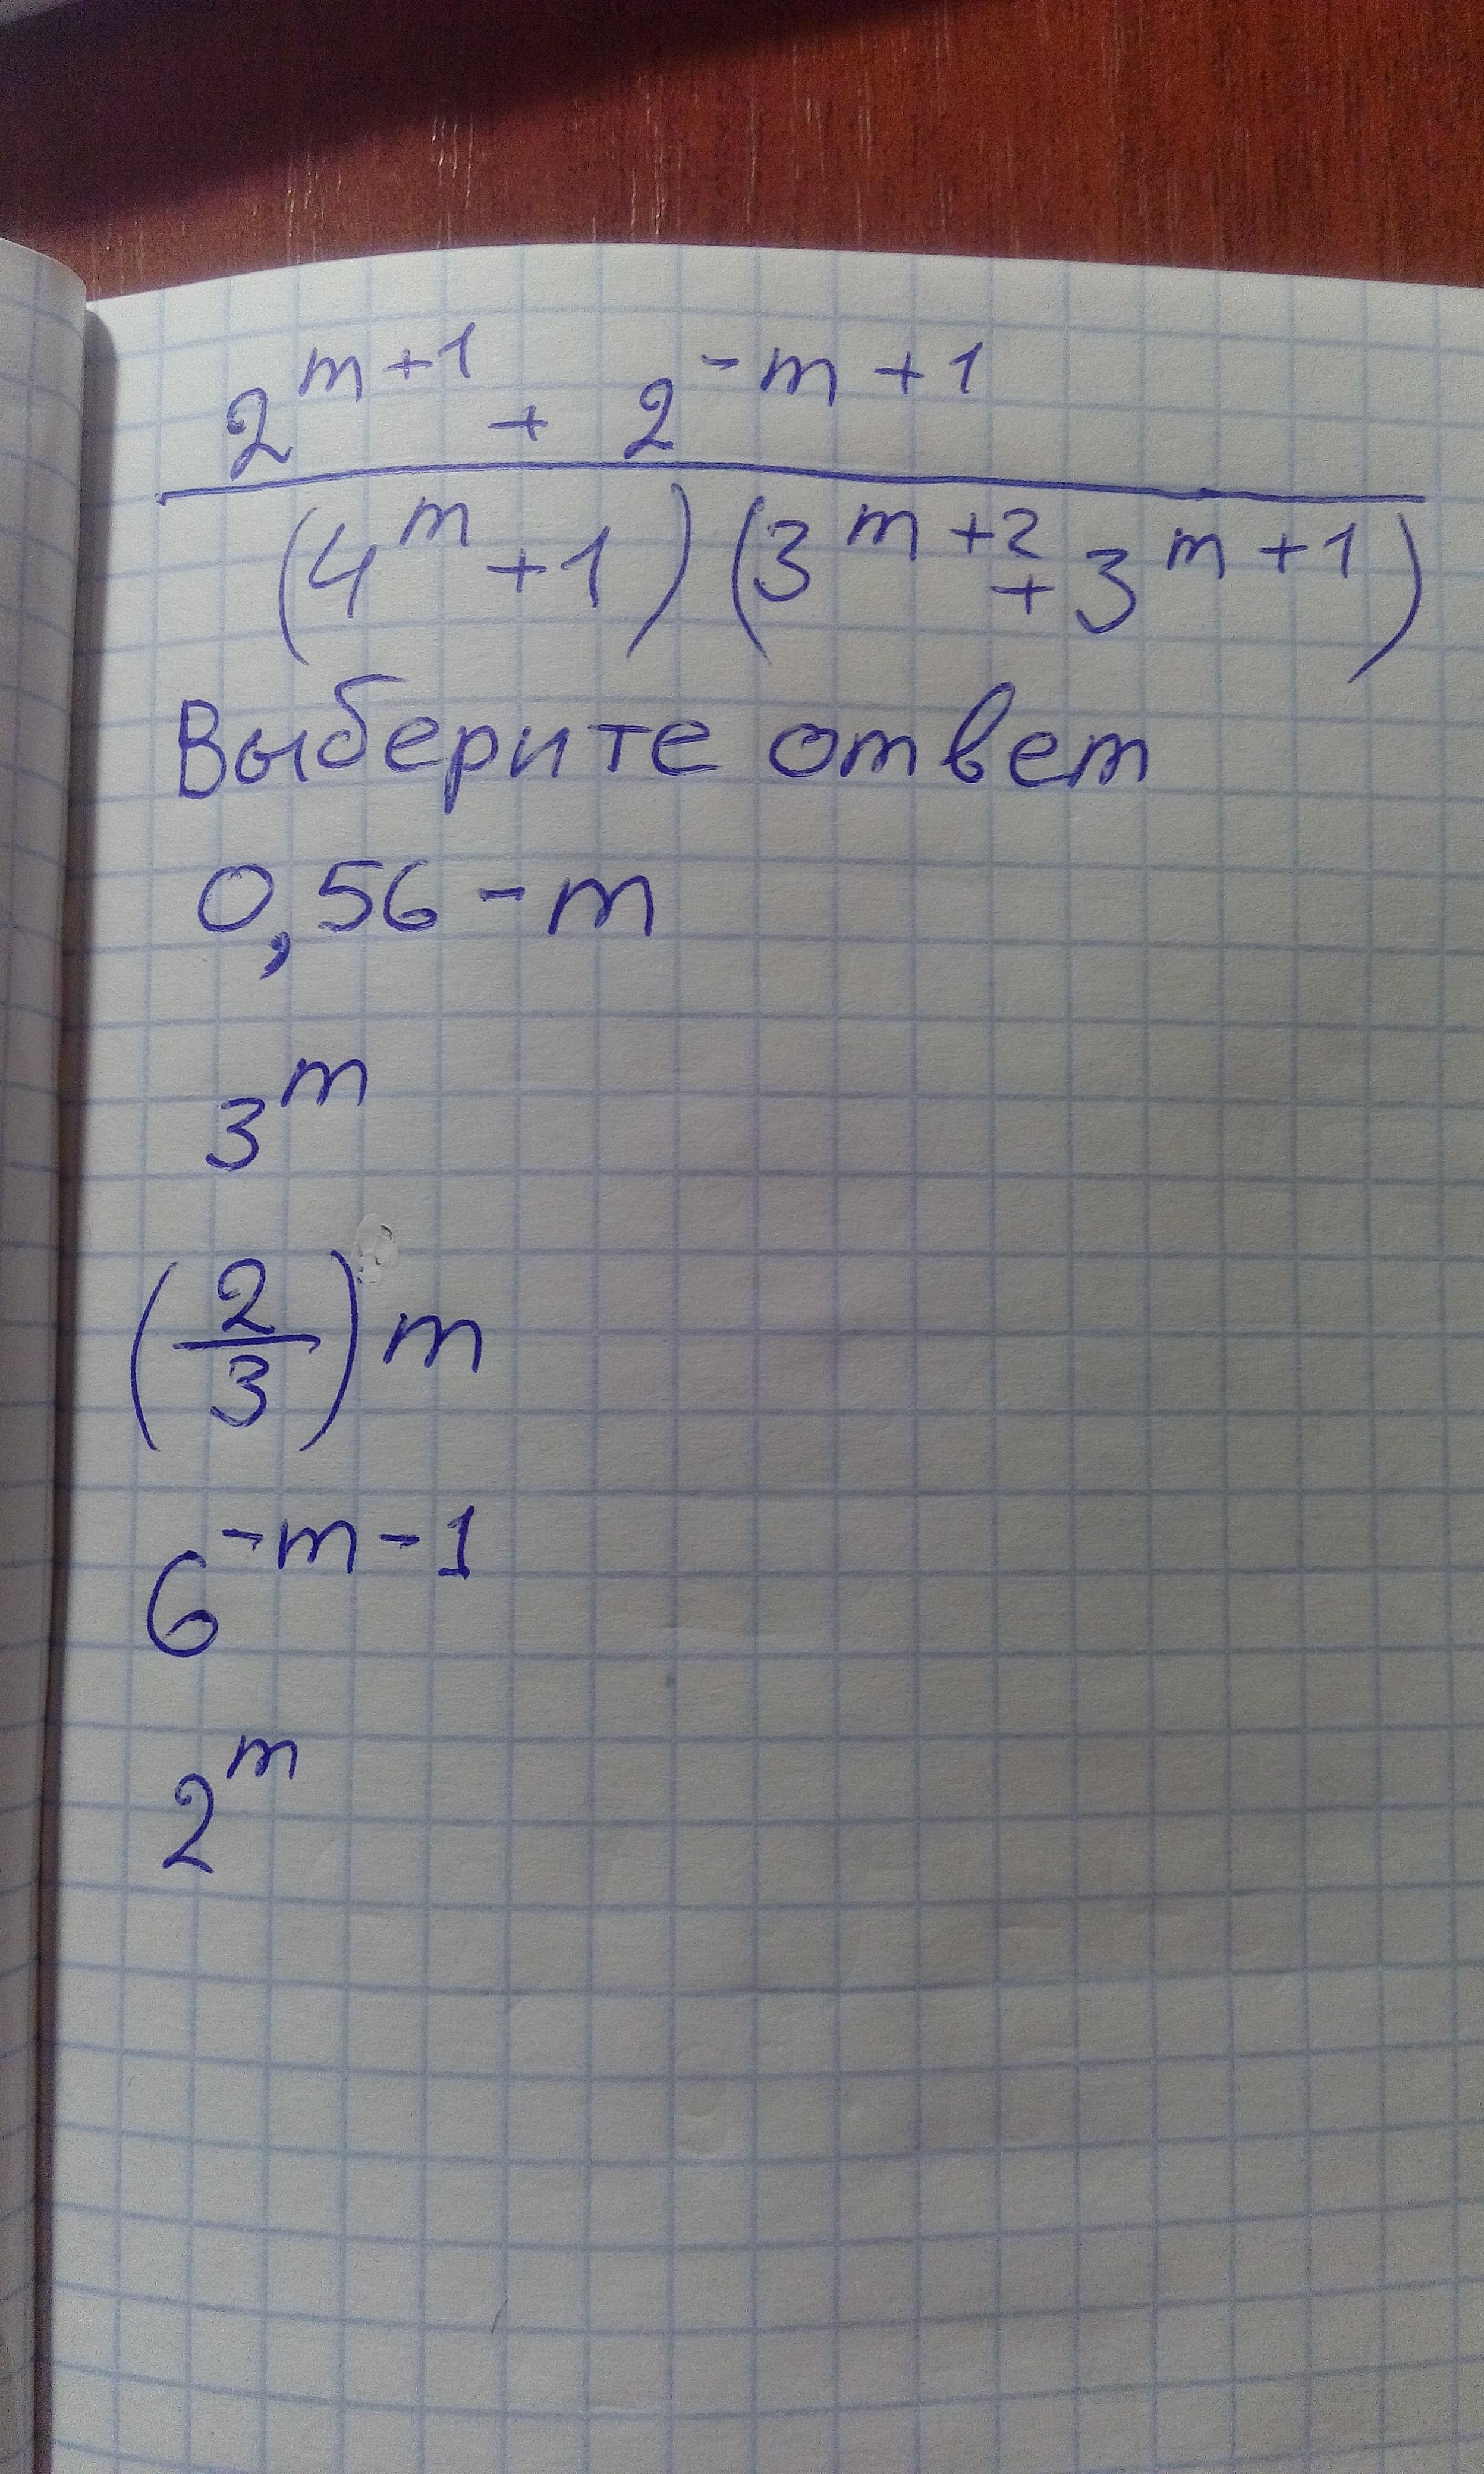 2^{m+1} + 2^{-m+1}
(4^m + 1)(3^{m+2} + 3^{m+1})
Выберите ответ
0,56 - m
3^m
(2/3) m
6^{-m-1}
2^m